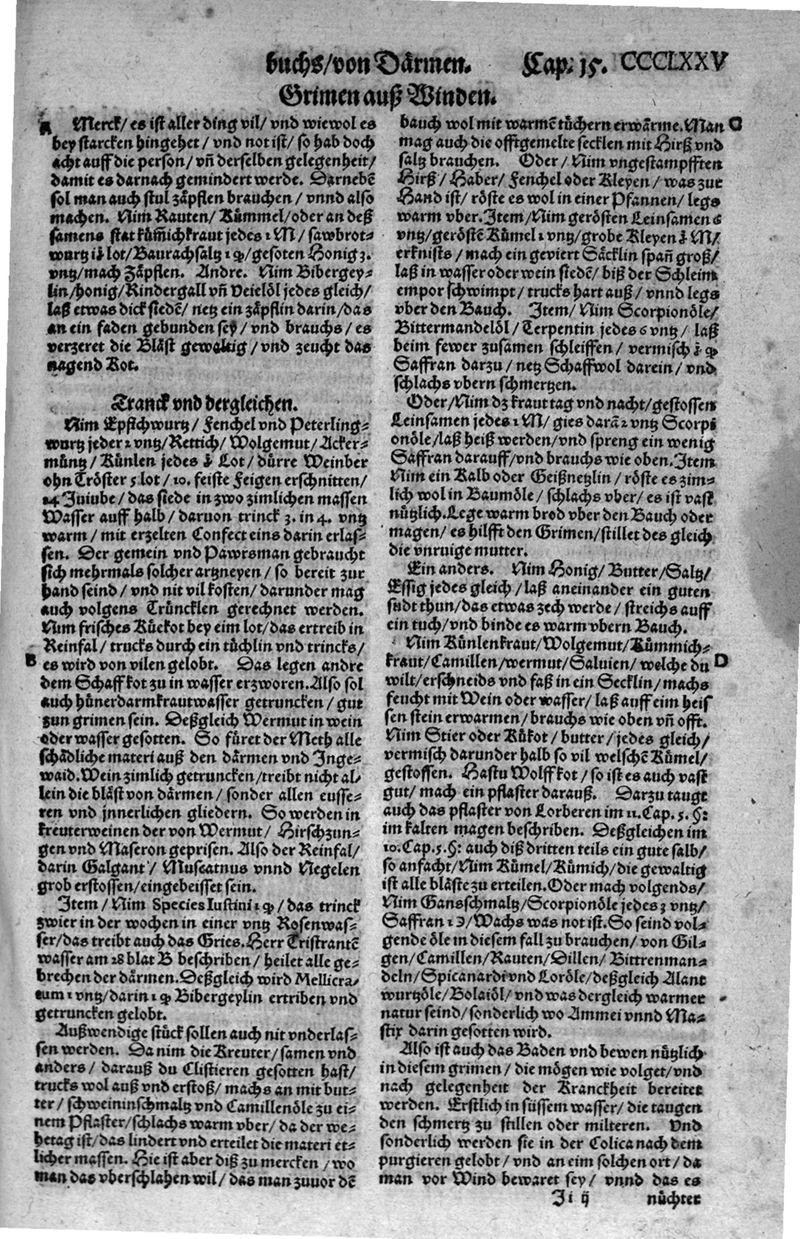 buchs/von Därmen. Cap. 15. CCCLXXV
Grimen auß Winden.
A Merck/ es ist aller ding vil/ vnd wiewol es
bey starcken hingehet/ vnd not ist/ so hab doch
acht auff die person/ vñ derselben gelegenheit/
damit es darnach gemindert werde. Darnebẽ
sol man auch stul zäpflen brauchen/ vnnd also
machen. Nim Rauten/ Kümmel/ oder an deß
samens stat küm̃ichkraut jedes 1 M/ sawbrot-
wurtz lot/ Baurachsaltz 1 / gesoten Honig 3.
vntz/ mach Zäpflen. Andre. Nim Bibergey-
lin/ honig/ Rindergall vñ Veielöl jedes gleich/
laß etwas dick siedẽ/ netz ein zäpflin darin/ das
an ein faden gebunden sey/ vnd brauchs/ es
verzeret die Bläst gewaltig/ vnd zeucht das
nagend Kot.
Tranck vnd dergleichen.
Nim Epffchwurtz/ Fenchel vnd Peterling-
wurtz jeder 1 vntz/ Rettich/ Wolgemut/ Acker-
müntz/ Künlen jedes Lot/ dürre Weinber
ohn Tröster 5 lot/ 10. feiste Feigen erschnitten/
24 Juiube/ das siede in zwo zimlichen massen
Wasser auff halb/ daruon trinck 3. in 4. vntz
warm/ mit erzelten Confect eins darin erlas-
sen. Der gemein vnd Pawrsman gebraucht
sich mehrmals solcher artzneyen/ so bereit zur
hand seind/ vnd nit vil kosten/ darunder mag
auch volgens Träncklen gerechnet werden.
Nim frisches Kückot bey eim lot/ das ertreib in
Reinfal/ trucks durch ein tüchlin vnd trincks/
B es wird von vilen gelobt. Das legen andre
dem Schaffkot zu in wasser erzworen. Also sol
auch hünerdarmkrautwasser getruncken/ gut
zun grimen sein. Deßgleich Wermut in wein
oder wasser gesotten. So füret der Meth alle
schädliche materi auß den därmen vnd Inge-
waid. Wein zimlich getruncken/ treibt nicht al-
lein die bläst von därmen/ sonder allen eusse-
ren vnd jnnerlichen gliedern. So werden in
kreuterweinen der von Wermut/ Hirschzun-
gen vnd Maseron geprisen. Also der Reinfal/
darin Galgant/ Muscatnus vnnd Negelen
grob erstossen/ eingebeisset sein.
Item/ Nim Species Iustini 1 / das trinck
zwier in der wochen in einer vntz Rosenwas-
ser/ das treibt auch das Gries. Herr Tristrantẽ
wasser am 28 blat B beschriben/ heilet alle ge-
brechen der därmen. Deßgleich wird Mellicra-
tum 1 vntz/ darin 1 Bibergeylin ertriben vnd
getruncken gelobt.
Außwendige stück sollen auch nit vnderlas-
sen werden. Da nim die Kreuter/ samen vnd
anders/ darauß du Clistieren gesotten hast/
trucks wol auß vnd erstoß/ machs an mit but-
ter/ schweininschmaltz vnd Camillenöle zu ei-
nem Pflaster/ schlachs warm vber/ da der we-
hetag ist/ das lindert vnd erteilet die materi et-
licher massen. Hie ist aber diß zu mercken/ wo
man das vberschlahen wil/ das man zuuor dẽ
bauch wol mit warmẽ tüchern erwärme. Man C
mag auch die offtgemelte secklen mit Hirß vnd
saltz brauchen. Oder/ Nim vngestampfften
Hirß/ Haber/ Fenchel oder Kleyen/ was zur
Hand ist/ röste es wol in einer Pfannen/ legs
warm vber. Item/ Nim gerösten Leinsamen 6
vntz/ geröstẽ Kümel 1 vntz/ grobe Kleyen M/
erknists/ mach ein geviert Säcklin spañ groß/
laß in wasser oder wein siedẽ/ biß der Schleim
empor schwimpt/ trucks hart auß/ vnnd legs
vber den Bauch. Item/ Nim Scorpionöle/
Bittermandelöl/ Terpentin jedes 6 vntz/ laß
beim fewer zusamen schleiffen/ vermisch
Saffran darzu/ netz Schaffwol darein/ vnd
schlachs vbern schmertzen.
Oder/ Nim dz kraut tag vnd nacht/ gestossen
Leinsamen jedes 1 M/ gies darã 2 vntz Scorpi
onöle/ laß heiß werden/ vnd spreng ein wenig
Saffran darauff/ vnd brauchs wie oben. Item
Nim ein Kalb oder Geißnetzlin/ röste es zim-
lich wol in Baumöle/ schlachs vber/ es ist vast
nützlich. Lege warm brod vber den Bauch oder
magen/ es hilfft den Grimen/ stillet des gleich
die vnruige mutter.
Ein anders. Nim Honig/ Butter/ Saltz/
Essig jedes gleich/ laß aneinander ein guten
sudt thun/ das etwas zech werde/ streichs auff
ein tuch/ vnd binde es warm vbern Bauch.
Nim Künlenkraut/ Wolgemut/ Kümmich-
kraut/ Camillen/ wermut/ Saluien/ welche du D
wilt/ erschneids vnd faß in ein Secklin/ machs
feucht mit Wein oder wasser/ laß auff eim heis
sen stein erwarmen/ brauchs wie oben vñ offt.
Nim Stier oder Kükot/ butter/ jedes gleich/
vermisch darunder halb so vil welschẽ Kümel/
gestossen. Hastu Wolffkot/ so ist es auch vast
gut/ mach ein pflaster darauß. Darzu taugt
auch das pflaster von Lorberen im 11. Cap. 5. H:
im kalten magen beschriben. Deßgleichen im
10. Cap. 5. H: auch diß dritten teils ein gute salb/
so anfacht/ Nim Kümel/ Kümich/ die gewaltig
ist alle bläste zu erteilen. Oder mach volgends/
Nim Gansschmaltz/ Scorpionöle jedes 2 vntz/
Saffran 1 / Wachs was not ist. So seind vol-
gende öle in diesem fall zu brauchen/ von Gil-
gen/ Camillen/ Rauten/ Dillen/ Bittrenman-
deln/ Spicanardi vnd Loröle/ deßgleich Alant
wurtzöle/ Bolaiöl/ vnd was dergleich warmer
natur seind/ sonderlich wo Ammei vnnd Ma-
stix darin gesotten wird.
Also ist auch das Baden vnd bewen nützlich
in diesem grimen/ die mögen wie volget/ vnd
nach gelegenheit der Kranckheit bereitet
werden. Erstlich in süssem wasser/ die taugen
den schmertz zu stillen oder milteren. Vnd
sonderlich werden sie in der Colica nach dem
purgieren gelobt/ vnd an eim solchen ort/ da
man vor Wind bewaret sey/ vnnd das es
Ji ij nüchter